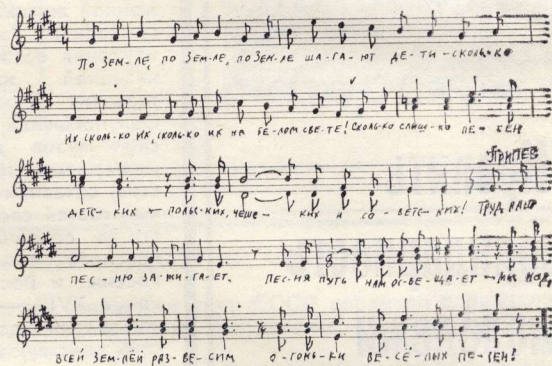 По зем-ле, по зем-ле, по зем-ле ша-га-ют де-ти - сколь-ко
их, сколь-ко их, сколь-ко их на бе-лом све-те! Сколь-ко слыш-но пе-сен
Припев
детс-ких - польс-ких, чешс-ких и со-ветс-ких! Труд наш
пес-ню за-жи-га-ет. Пес-ня путь нам ос-ве-ща-ет - мы над
всей зем-лёй раз-ве-сим о-гонь-ки ве-сё-лых пе-сен!